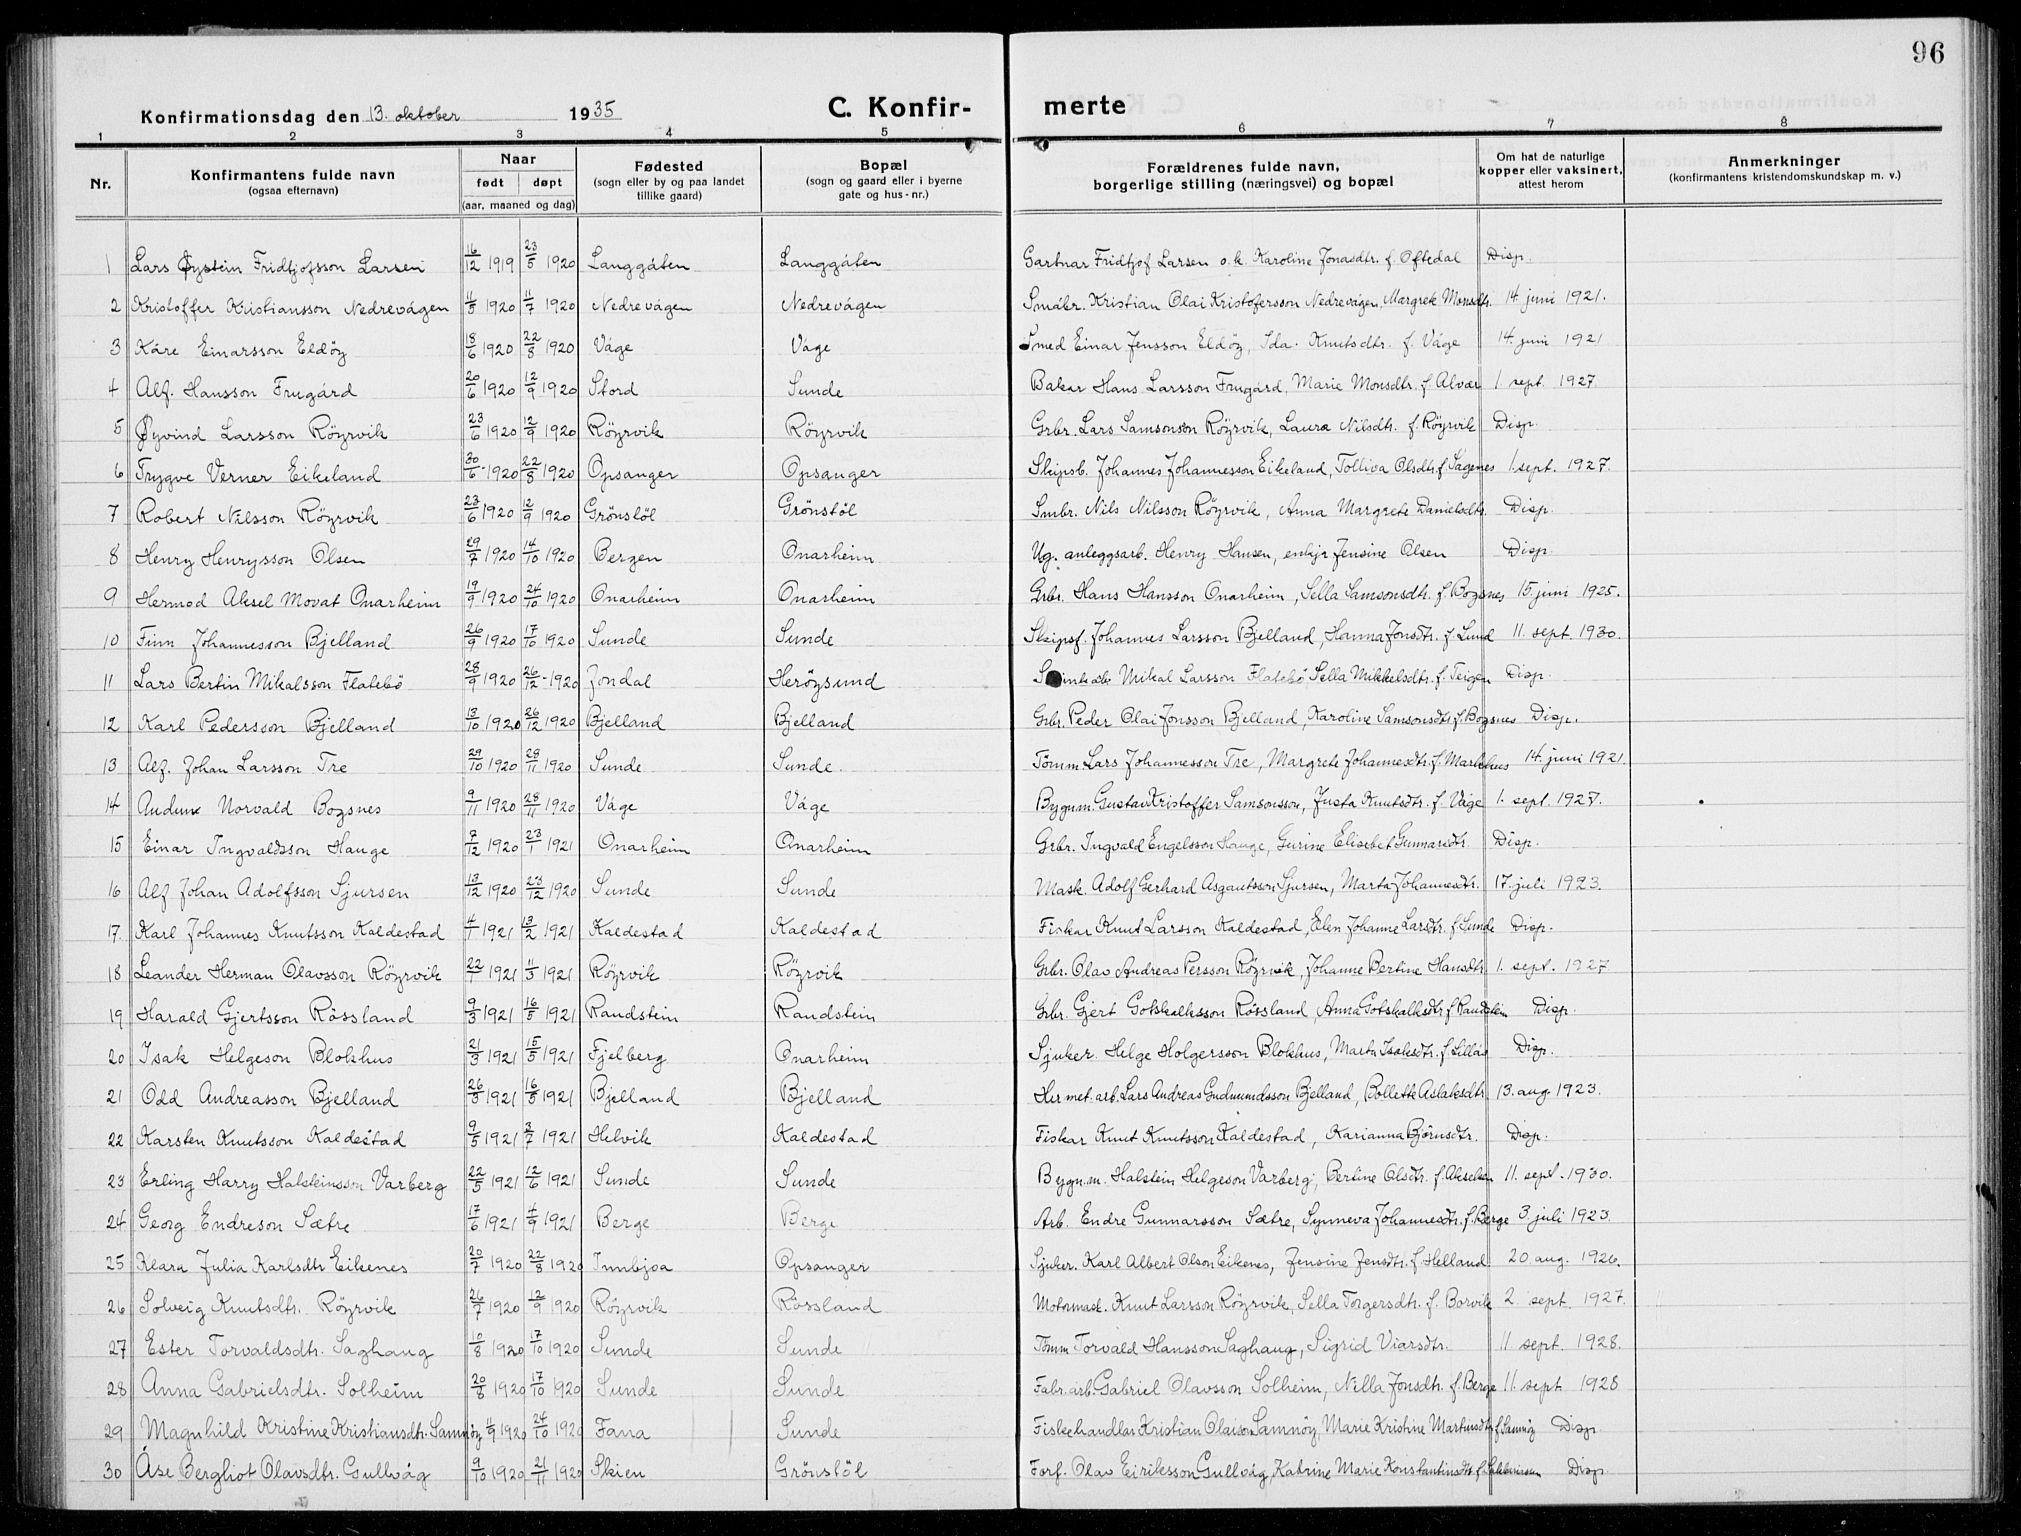 96
Konfirmationsdag den 13. oktober 1935 C. Konfir- merte
1 2 3 4 5 6 7 8
Nr. Konfirmantens fulde navn (ogsaa efternavn) Naar født døpt (aar, maaned og dag) Fødested (sogn eller by og paa landet tillike gaard) Bopæl (sogn og gaard eller i byerne gate og hus-nr.) Forældrenes fulde navn, borgerlige stilling (næringsvei) og bopæl Om hat de naturlige kopper eller vaksinert, attest herom Anmerkninger (konfirmantens kristendomskundskap m. v.)
1 Lars Øystein Fridtjofsson Larsen 16/12 1919 23/5 1920 Langgáten Langgáten Gartnar Fridtjof Larsen o.k. Karoline Jonasdtr. f. Oftedal Disp.
2 Kristoffer Kristiansson Nedrevágen 11/5 1920 11/7 1920 Nedrevágen Nedrevágen Smábr. Kristian Olai Kristofersson Nedrevágen, Margrete Monsdtr. 14. juni 1921.
3 Káre Einarsson Eldøy 18/6 1920 22/8 1920 Váge Váge Smed Einar Jensson Eldöy, Ida. Knutsdtr. f. Váge 14. juni 1921
4 Alf. Hansson Frugárd 20/6 1920 12/9 1920 Stord Sunde Bakar Hans Larsson Frugárd, Marie Monsdtr. f. Alvær 1. sept. 1927.
5 Øyvind Larsson Röyrvik 23/6 1920 12/9 1920 Röyrvik Röyrvik Grbr. Lars Samsonson Röyrvik, Laura Nilsdtr. f. Röyrvik Disp.
6 Trygve Verner Eikeland 30/6 1920 22/8 1920 Opsanger Opsanger Skipsb. Johannes Johannesson Eikeland, Tolliva Olsdtr. f. Ságenes 1. sept. 1927.
7 Robert Nilsson Röyrvik 23/6 1920 12/9 1920 Grönstöl Grönstöl Smbr. Nils Nilsson Röyrvik, Anna Margrete Danielsdtr. Disp.
8 Henry Henrysson Olsen 29/7 1920 14/10 1920 Bergen Onarheim Ug. anleggsarb. Henry Hansen, enkja Jensine Olsen Disp.
9 Hermod Aksel Movat Onarheim 19/9 1920 24/10 1920 Onarheim Onarheim Grbr. Hans Hansson Onarheim, Sella Samsonsdtr. f. Bogsnes 15. juni 1925.
10 Finn Johannesson Bjelland 26/9 1920 17/10 1920 Sunde Sunde Skipsf. Johannes Larsson Bjelland, Hanna Jonsdtr. f. Lund 11. sept. 1930.
11 Lars Bertin Mikalsson Flatebö 28/9 1920 26/12 1920 Jondal Heröysund Mikal Larsson Flatebö, Sella Mikkelsdtr. f. Teigen Disp.
12 Karl Pedersson Bjelland 13/10 1920 26/12 1920 Bjelland Bjelland Grbr. Peder Olai Jonsson Bjelland, Karoline Samsonsdtr. f. Bogsnes Disp.
13 Alf. Johan Larsson Tre 29/10 1920 28/11 1920 Sunde Sunde. Tömm. Lars Johannesson Tre, Margrete Johannesdtr. f. Markhus 14. juni 1921.
14 Audun Norvald Bogsnes 9/11 1920 28/11 1920 Váge Váge Bygnm. Gustav Kristoffer Samsonsson, Justa Knutsdtr. f. Váge 1. sept. 1927.
15 Einar Ingvaldsson Hauge 9/12 1920 23/1 1921 Onarheim Onarheim Grbr. Ingvald Engelsson Hauge, Gurine Elisebet Gunnarsdtr. Disp.
16 Alf Johan Adolfsson Sjursen 13/12 1920 23/12 1920 Sunde Sunde Mask. Adolf Gerhard Asgautsson Sjursen, Marta Johannesdtr. 17. juli 1923.
17. Karl Johannes Knutsson Kaldestad 4/1 1921 13/2 1921 Kaldestad Kaldestad Fiskar Knut Larsson Kaldestad, Elen Johanne Larsdtr. f. Sunde Disp.
18 Leander Herman Olavsson Röyrvik 22/1 1921 11/5 1921 Röyrvik Röyrvik Grbr. Olav Andreas Persson Röyrvik, Johanne Bertine Hansdtr. 1. sept. 1927
19 Harald Gjertsson Rössland 9/3 1921 16/5 1921 Randstein Randstein Grbr. Gjert Gotskalksson Rössland, Anna Gotskalksdtr. f. Randstein Disp.
20 Isak Helgeson Blokhus 21/3 1921 15/5 1921 Fjelberg Onarheim Sjuker. Helge Holgersson Blokhus, Marta Isaksdtr. f. Lillás Disp.
21 Odd Andreasson Bjelland 26/3 1921 16/5 1921 Bjelland Bjelland Hermet.arb. Lars Andreas Gudmundsson Bjelland, Bollette Aslaksdtr. 13. aug. 1923.
22 Karsten Knutsson Kaldestad 9/5 1921 3/7 1921 Helvik Kaldestad Fiskar Knut Knutsson Kaldestad, Karianna Björnsdtr. Disp.
23 Erling Harry Halsteinsson Varberg 22/5 1921 12/6 1921 Sunde Sunde Bygn.m. Halstein Helgeson Varberg, Bertine Olsdtr. f. 11. sept. 1930.
24 Georg Endreson Sætre 17/6 1921 4/9 1921 Berge Berge Arb. Endre Gunnarsson Sætre, Synneva Johannesdtr. f. Berge 3. juli 1923.
25 Klara Julia Karlsdtr Eikenes 20/7 1920 22/8 1920 Innbjoa Opsanger Sjuker. Karl Albert Olson Eikenes, Jensine Jensdtr. f. Helland 20 aug. 1926.
26 Solveig Knutsdtr. Röyrvik 26/7 1920 12/9 1920 Röyrvik Rössland Motormask. Knut Larsson Röyrvik, Sella Torgersdtr. f. Borvik 2. sept. 1927.
27 Ester Torvaldsdtr. Saghaug 10/8 1920 17/10 1920 Sunde Sunde Tömm Torvald Hansson Saghaug, Sigrid Viarsdtr. 11 sept. 1928.
28 Anna Gabrielsdtr. Solheim 20/8 1920 17/10 1920 Sunde Sunde Fabr.arb. Gabriel Olavsson Solheim, Nilla Jonsdtr. f. Berge 11. sept 1928
29 Magnhild Kristine Kristiansdtr. Samnöy 11/9 1920 24/10 1920 Fana Sunde Fiskehandlar Kristian Olaison Samnöy, Marie Kristine Martinsdtr f. Samnöy Disp
30 Áse Bergliot Olavsdtr. Gullvág 9/10 1920 21/11 1920 Skien Grönstöl Forf. Olav Eiriksson Gullvág, Katrine Marie Konstantinsdtr. f. Disp